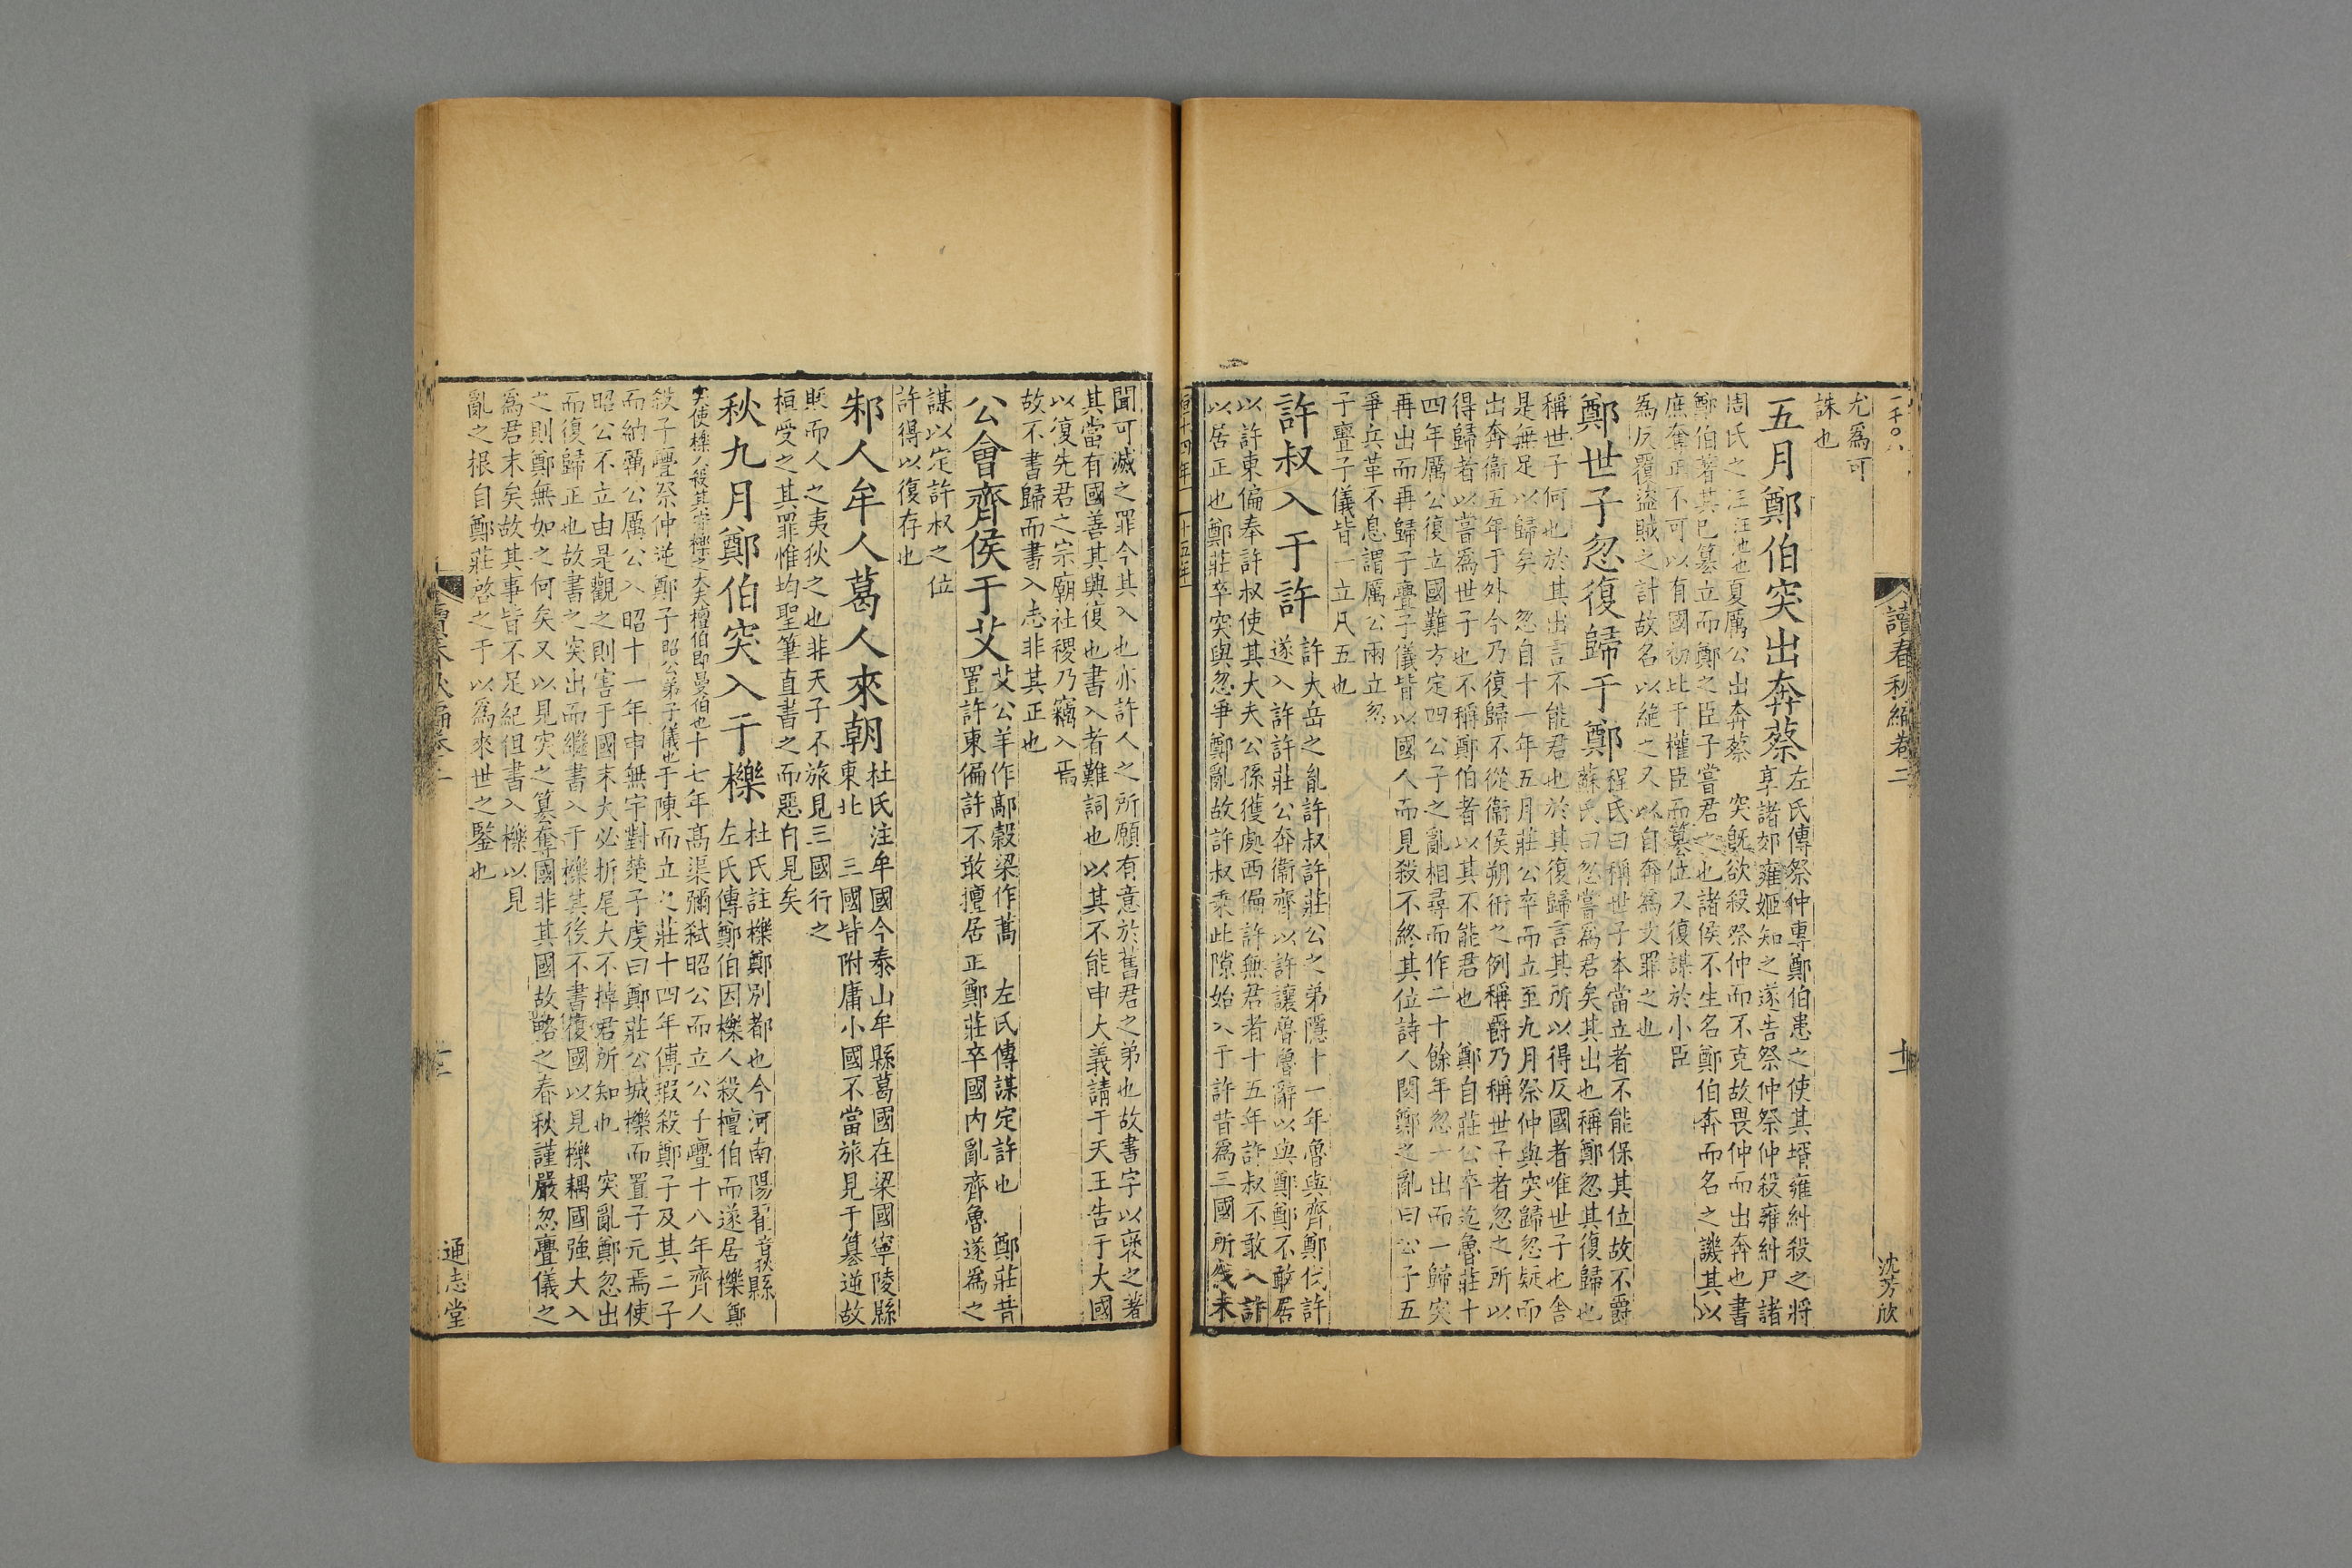 讀春秋編卷二
十一
沈芳欣
尤爲可
誅也
五月鄭伯突出奔蔡
左氏傳祭仲專鄭伯患之使其壻雍糾殺之將
享諸郊雍姬知之遂告祭仲祭仲殺雍糾尸諸
周氏之汪汪池也夏厲公出奔蔡 突旣欲殺祭仲而不克故畏仲而出奔也書
鄭伯著其已簒立而鄭之臣子嘗君之也諸侯不生名鄭伯奔而名之譏其以
庶奪正不可以有國初比于權臣而簒位又復謀於小臣
爲反覆盜賊之計故名以絶之又以自奔爲文罪之也
鄭世子忽復歸于鄭
程氏曰稱世子本當立者不能保其位故不爵
蘇氏曰忽嘗爲君矣其出也稱鄭忽其復歸也
稱世子何也於其出言不能君也於其復歸言其所以得反國者唯世子也舍
是無足以歸矣 忽自十一年五月莊公卒而立至九月祭仲與突歸忽疑而
出奔衞五年于外今乃復歸不從衞侯朔衎之例稱爵乃稱世子者忽之所以
得歸者以嘗爲世子也不稱鄭伯者以其不能君也 鄭自莊公卒迄魯莊十
四年厲公復立國難方定四公子之亂相尋而作二十餘年忽一出而一歸突
再出而再歸子亹子儀皆以國人而見殺不終其位詩人閔鄭之亂曰公子五
爭兵革不息謂厲公兩立忽
子亹子儀皆一立凡五也
許叔入于許
許大岳之胤許叔許莊公之弟隱十一年魯與齊鄭伐許
遂入許許莊公奔衞齊以許讓魯魯辭以與鄭鄭不敢居
以許東偏奉許叔使其大夫公孫獲處西偏許無君者十五年許叔不敢入許
以居正也鄭莊卒突與忽爭鄭亂故許叔乘此隙始入于許昔爲三國所殘未
聞可滅之罪今其入也亦許人之所願有意於舊君之弟也故書字以襃之著
其當有國善其興復也書入者難詞也以其不能申大義請于天王告于大國
以復先君之宗廟社稷乃竊入焉
故不書歸而書入志非其正也
公會齊侯于艾
艾公羊作鄗穀梁作蒿 左氏傳謀定許也 鄭莊昔
置許東偏許不敢擅居正鄭莊卒國内亂齊魯遂爲之
謀以定許叔之位
許得以復存也
邾人牟人葛人來朝
杜氏注牟國今泰山牟縣葛國在梁國寧陵縣
東北 三國皆附庸小國不當旅見于簒逆故
貶而人之夷狄之也非天子不旅見三國行之
桓受之其罪惟均聖筆直書之而惡自見矣
秋九月鄭伯突入于櫟
杜氏註櫟鄭別都也今河南陽翟音狄縣
左氏傳鄭伯因櫟人殺檀伯而遂居櫟鄭
突使櫟人殺其守櫟之大夫檀伯即曼伯也十七年高渠彌弑昭公而立公子亹十八年齊人
殺子亹祭仲逆鄭子昭公弟子儀也于陳而立之莊十四年傅瑕殺鄭子及其二子
而納厲公厲公入昭十一年申無宇對楚子虔曰鄭莊公城櫟而置子元焉使
昭公不立由是觀之則害于國末大必折尾大不掉君所知也 突亂鄭忽出
而復歸正也故書之突出而繼書入于櫟其後不書復國以見櫟耦國強大入
之則鄭無如之何矣又以見突之簒奪國非其國故略之春秋謹嚴忽亹儀之
爲君末矣故其事皆不足紀但書入櫟以見
亂之根自鄭莊啓之于以爲來世之鑒也
通志堂